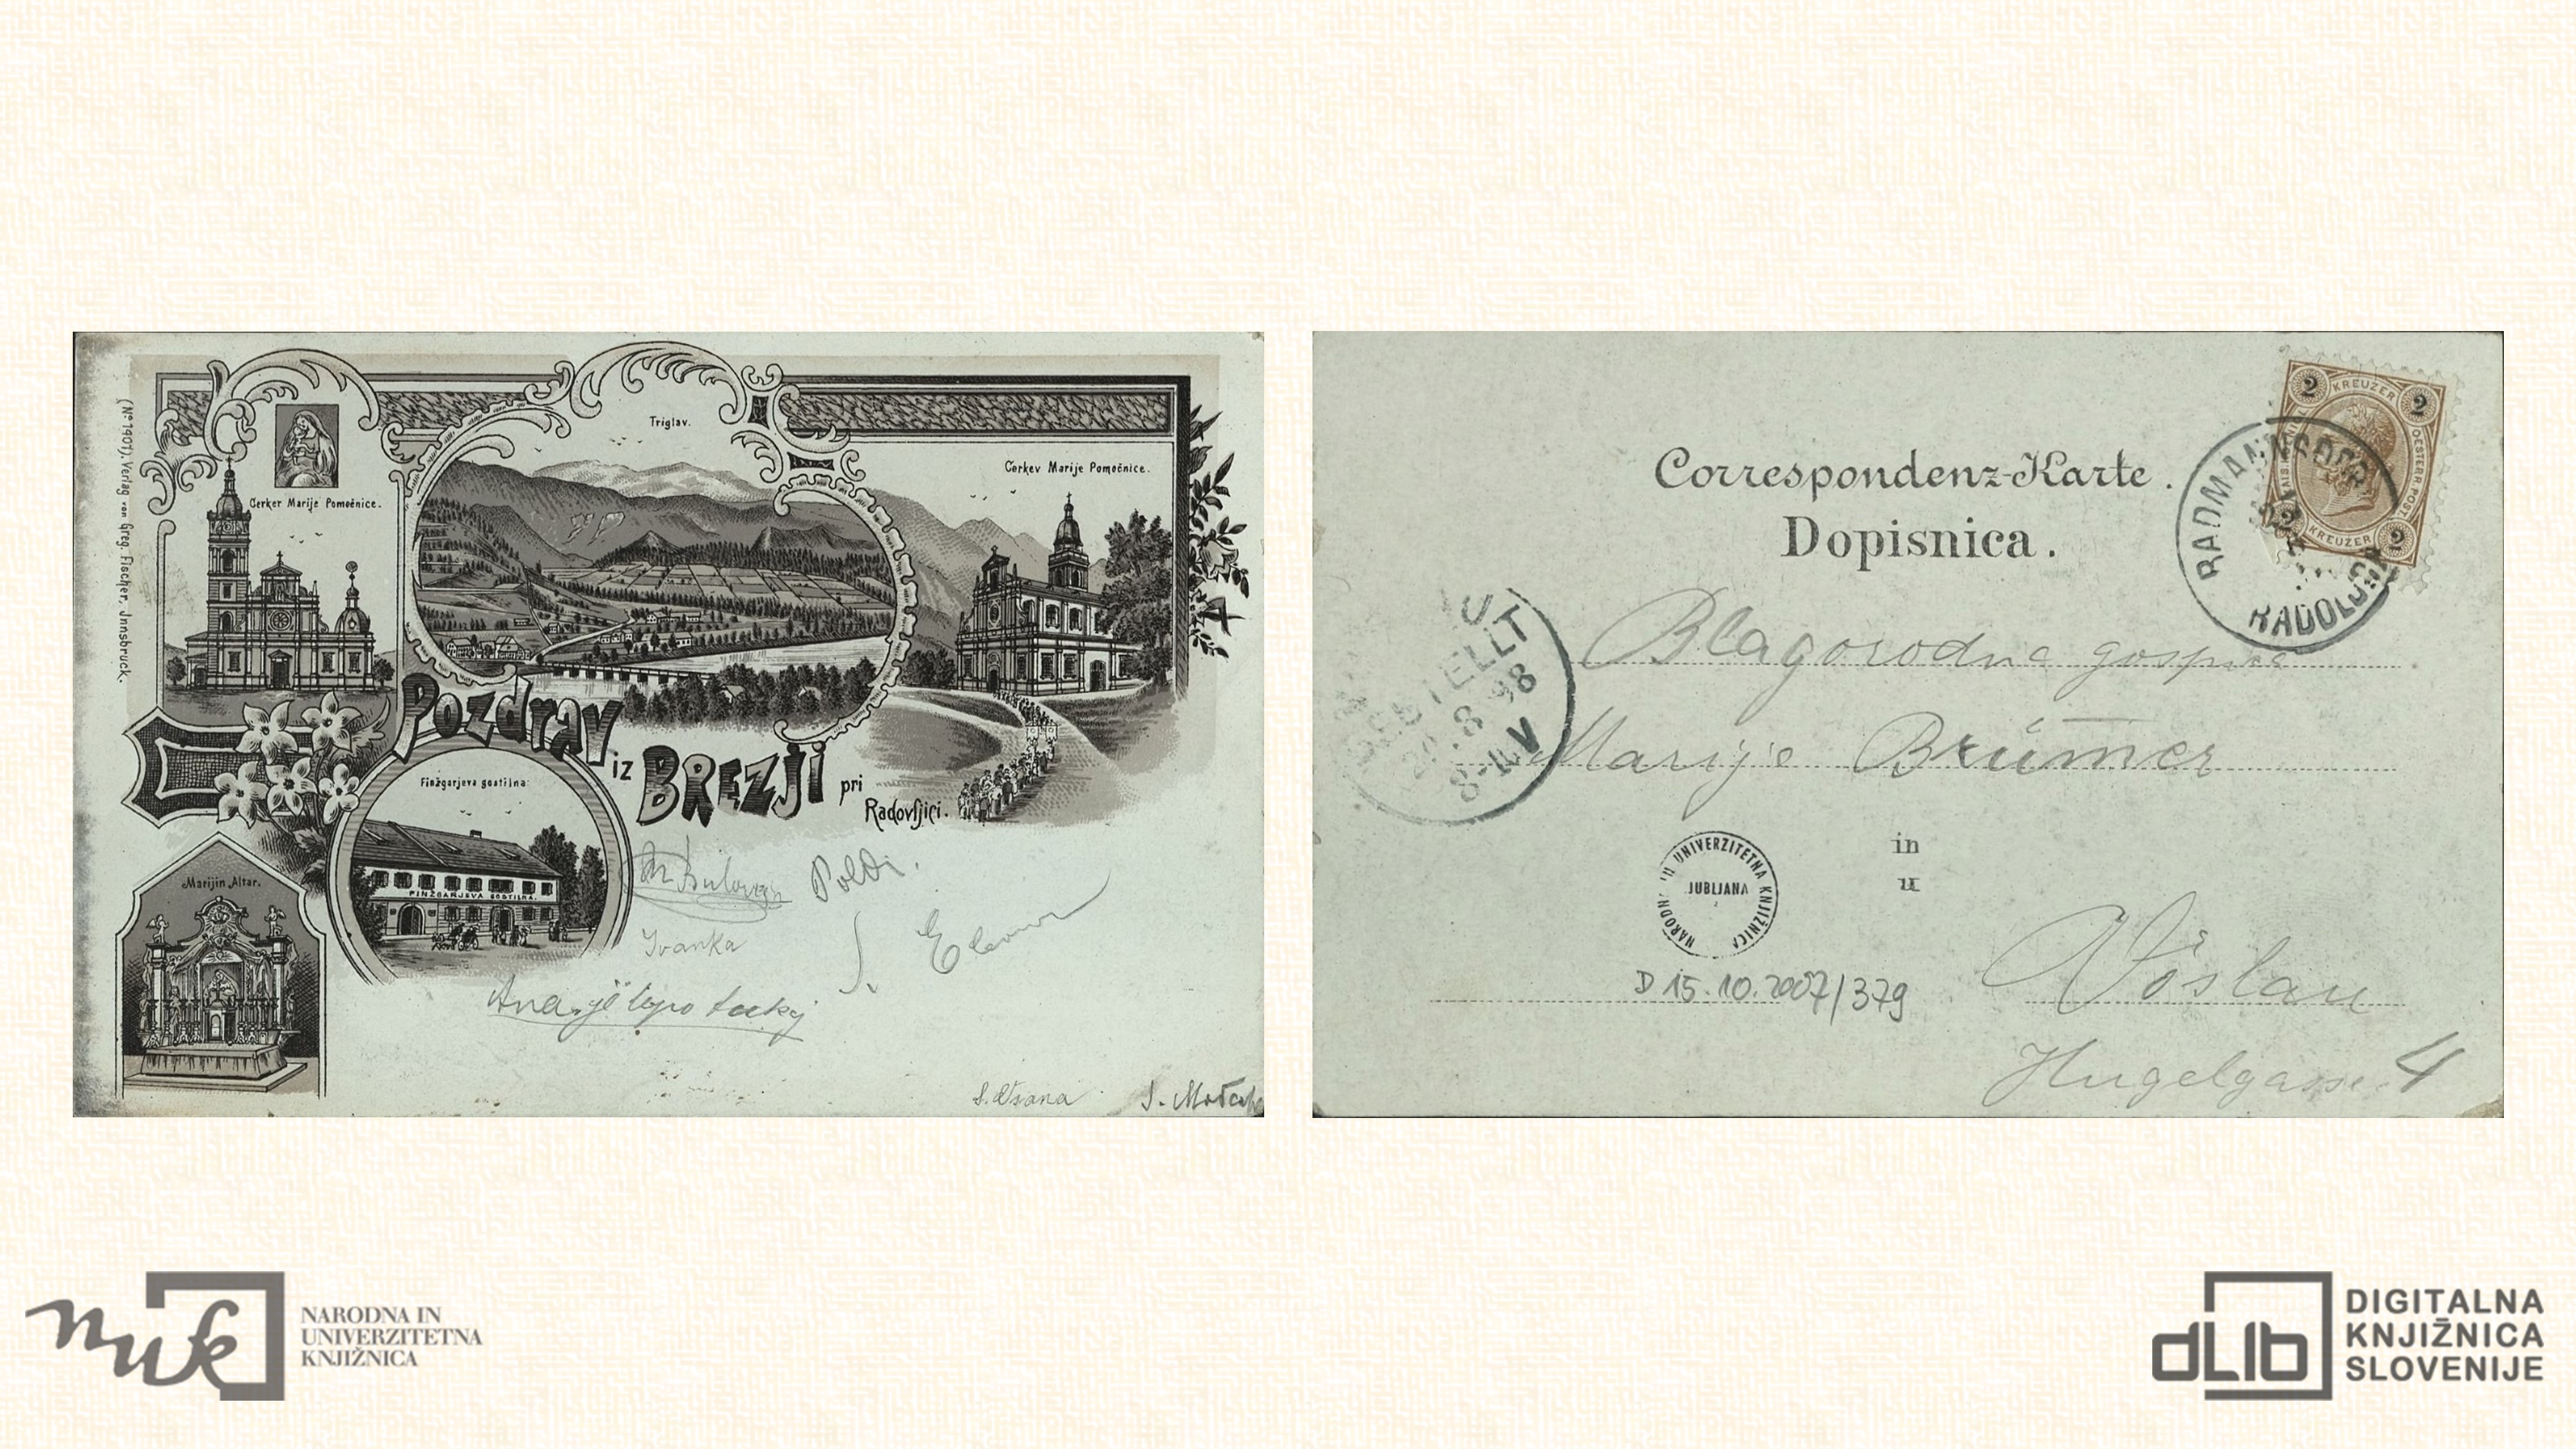 (No 1401). Verlag von Greg. Fischer, Jnnsbruck.
Triglav.
Cerker Marije Pomočnice.
Cerkev Marije Pomočnice.
Pozdrav
iz BREZJI pri
Radovljici.
Finžgarjeva gostilna
FINŽGARJEVA GOSTILNA.
Marijin Altar.
Poldi.
Ivanka
Ana je lepo tukaj
2 KREUZER 2
2 KREUZER 2
OESTERR. POST
Correspondenz-Karte.
Dopisnica.
RADMANNSDORF
RADOLJICA
BESTELLT
8 98
8-11 V
Blagorodna gospica
Marije Brümer
in
u
NARODNA IN UNIVERZITETNA KNJIŽNICA
LJUBLJANA
D 15.10.2007/379
Vöslau
Hugelgasse 4
nuk
NARODNA IN
UNIVERZITETNA
KNJIŽNICA
dLib
DIGITALNA
KNJIŽNICA
SLOVENIJE